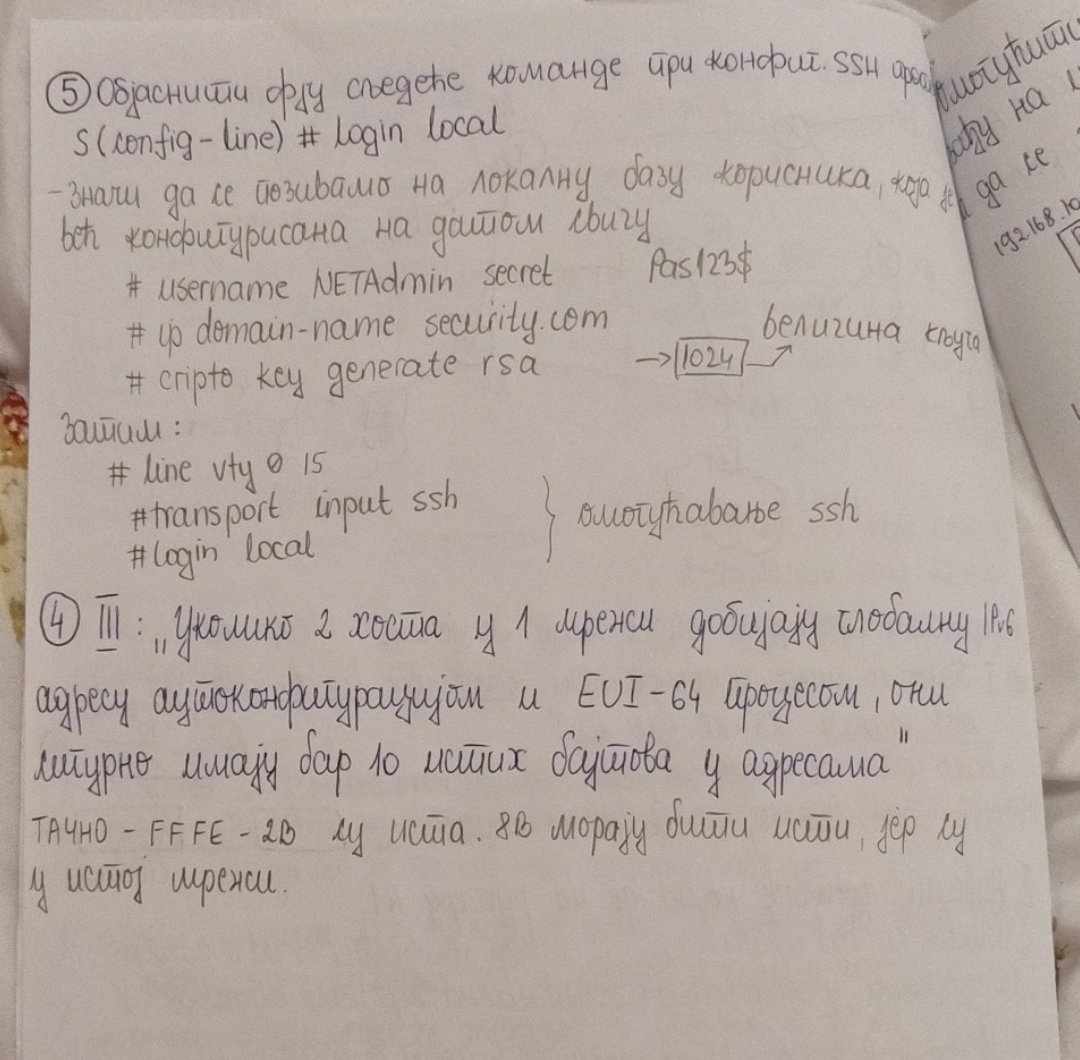 ⑤ Објаснити фју следеће команде при конфиг. SSH
S(config-line) # login local
- Значи да се позивамо на локалну базу корисника, која је
већ конфигурисана на датом свичу
# username NETAdmin secret Pas123$
# ip domain-name security.com
# cripto key generate rsa → 1024 величина кључа
Затим:
# line vty 0 15
#transport input ssh } омогућавање ssh
#login local
④ III : „Уколико 2 хоста у 1 мрежи добијају глобалну IPv6
адресу аутоконфигурацијом и EUI-64 процесом, они
сигурно имају бар 10 истих бајтова у адресама"
ТАЧНО - FFFE - 2B су иста. 8B морају бити исти, јер су
у истој мрежи.
омогућити
на
да се
192.168.10